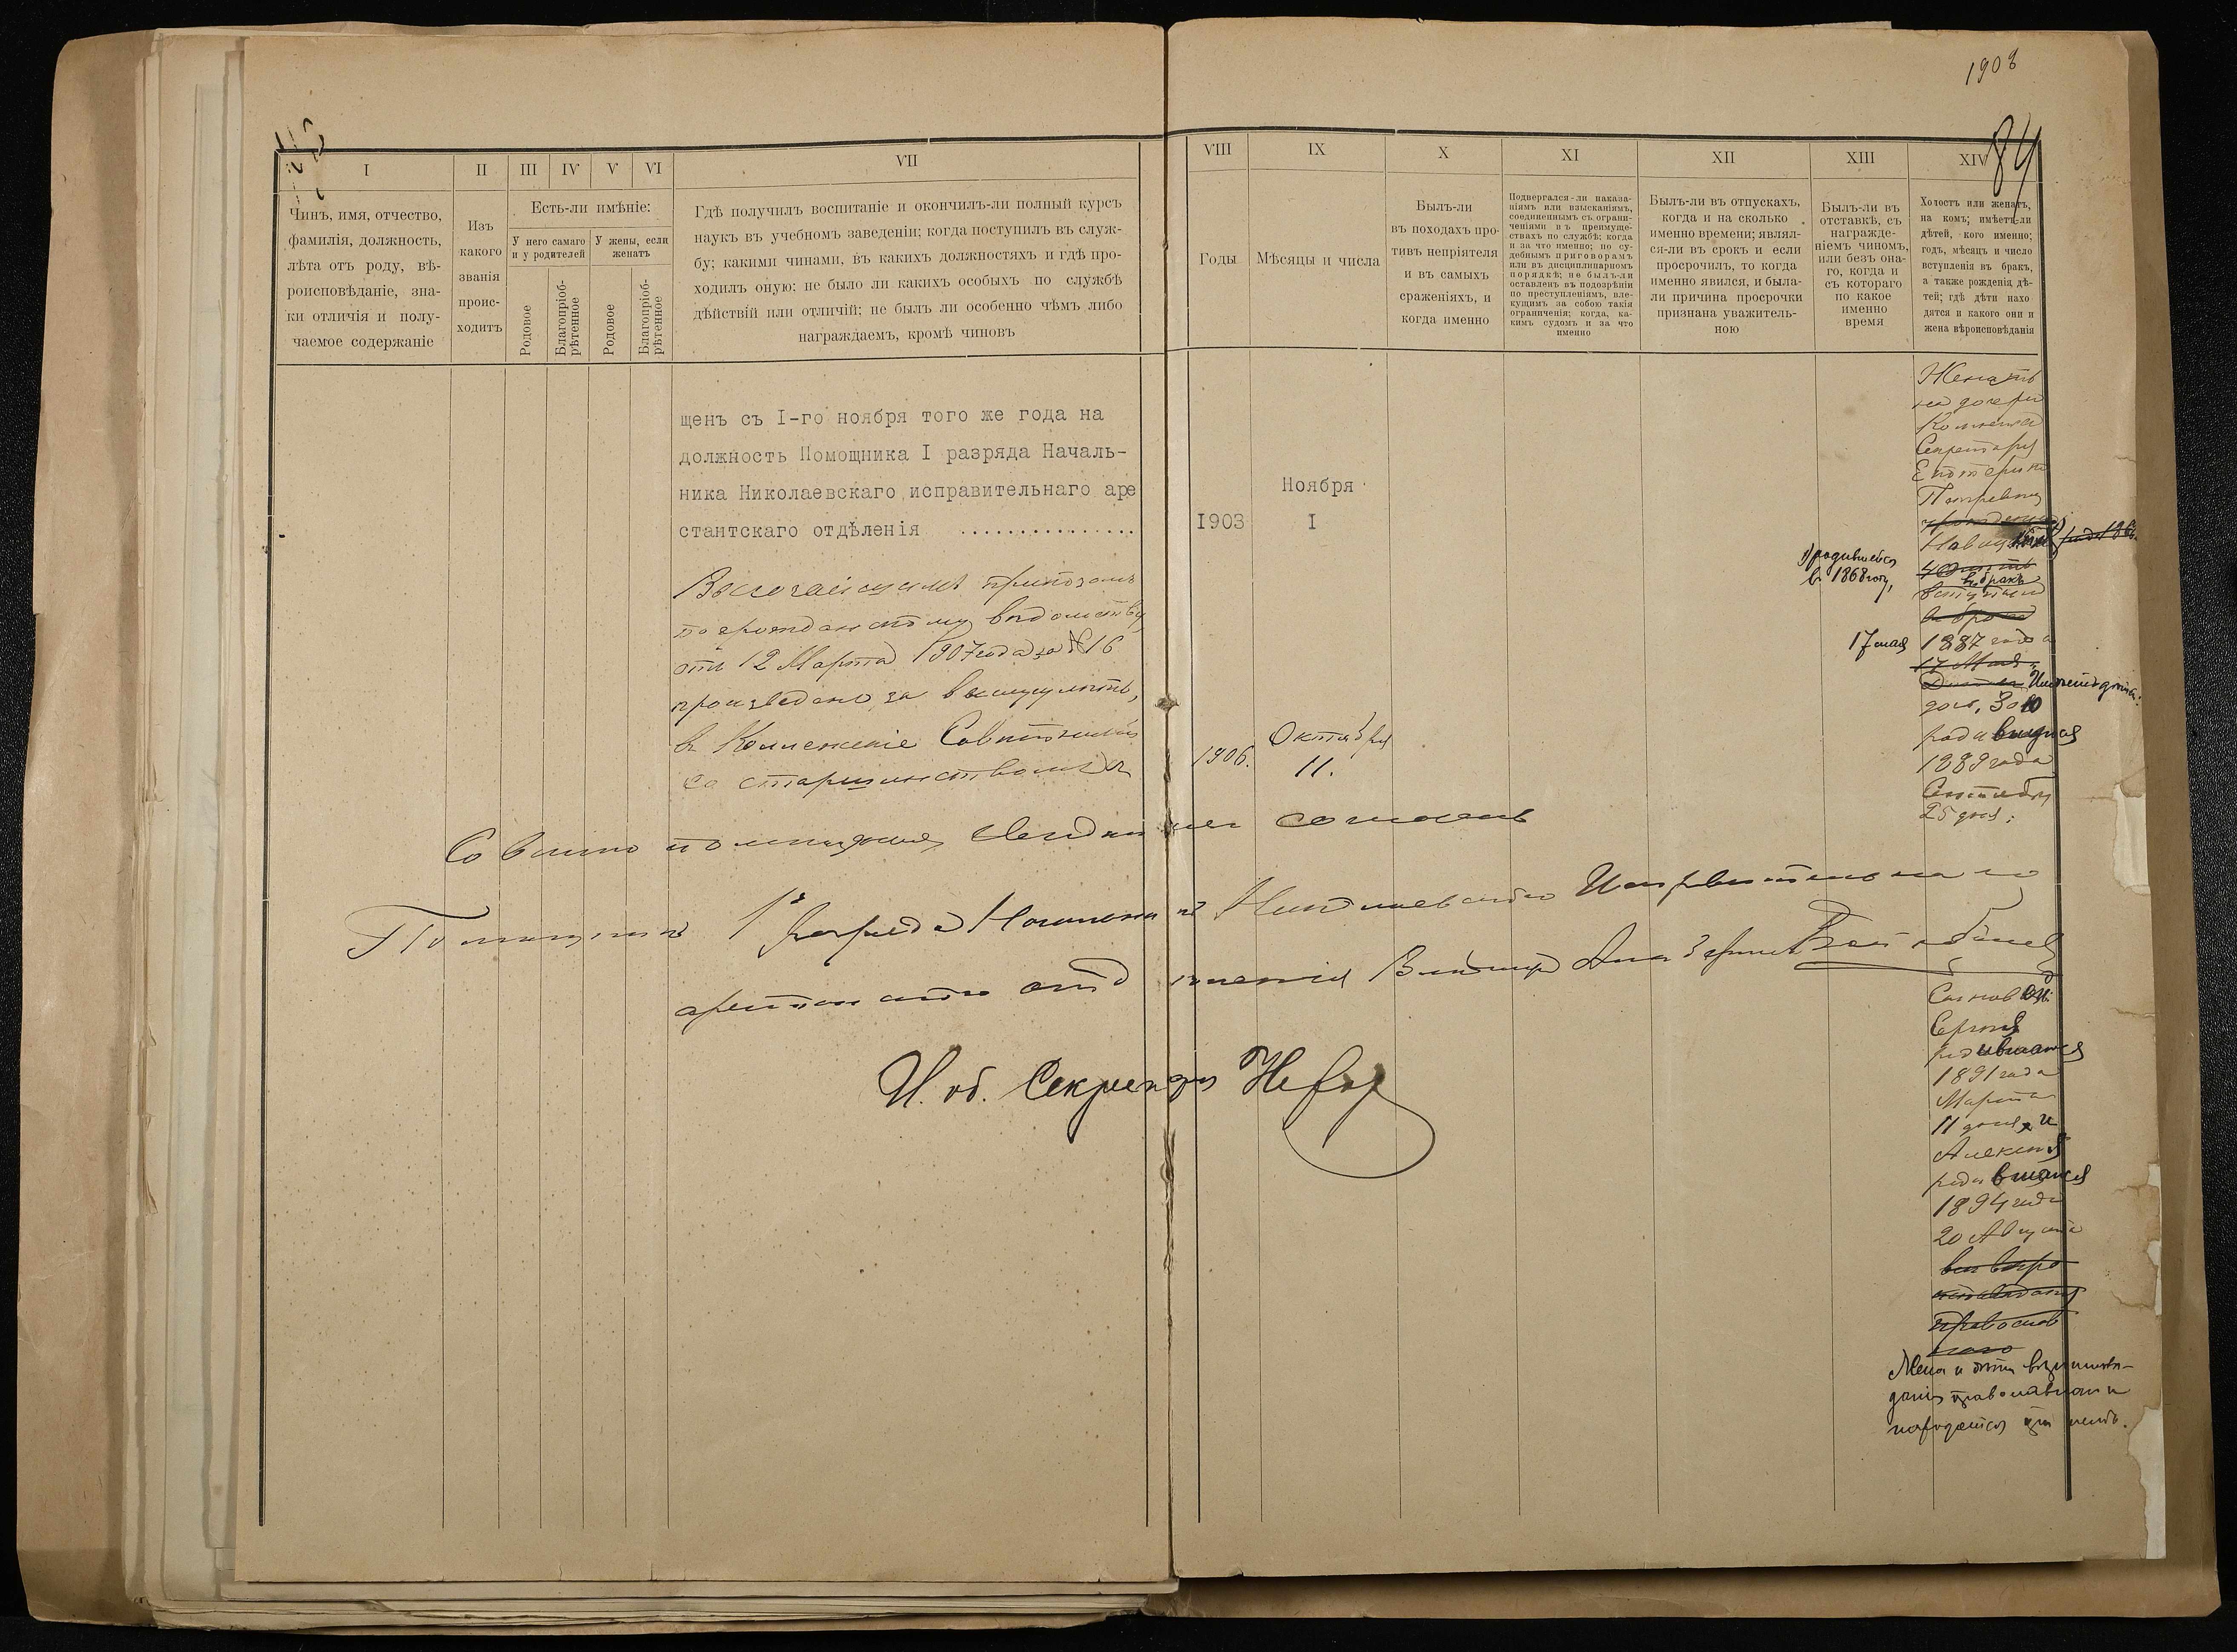 1908
84
I
II
III
IV
V
VI
VII
VIII
IX
X
XI
XII
XIII
XIV
Чинъ, имя, отчество,
фамилія, должность,
лѣта отъ роду, вѣ-
роисповѣданіе, зна-
ки отличія и полу-
чаемое содержаніе
Изъ
какого
званія
проис-
ходитъ
Есть-ли имѣніе:
У него самаго
и у родителей
У жены, если
женатъ
Родовое
Благопріоб-
рѣтенное
Родовое
Благопріоб-
рѣтенное
Гдѣ получилъ воспитаніе и окончилъ-ли полный курсъ
наукъ въ учебномъ заведеніи; когда поступилъ въ служ-
бу; какими чинами, въ какихъ должностяхъ и гдѣ про-
ходилъ оную; не было ли какихъ особыхъ по службѣ
дѣйствій или отличій; не былъ ли особенно чѣмъ либо
награждаемъ, кромѣ чиновъ
Годы
Мѣсяцы и числа
Былъ-ли
въ походахъ про-
тивъ непріятеля
и въ самыхъ
сраженіяхъ, и
когда именно
Подвергался-ли наказа-
ніямъ или взысканіямъ,
соединеннымъ съ ограни-
ченіями въ преимуще-
ствахъ по службѣ; когда
и за что именно; по су-
дебнымъ приговорамъ
или въ дисциплинарномъ
порядкѣ; не былъ-ли
оставленъ въ подозрѣніи
по преступленіямъ, вле-
кущимъ за собою такія
ограниченія; когда, ка-
кимъ судомъ и за что
именно
Былъ-ли въ отпускахъ,
когда и на сколько
именно времени; являл-
ся-ли въ срокъ и если
просрочилъ, то когда
именно явился, и была-
ли причина просрочки
признана уважитель-
ною
Былъ-ли въ
отставкѣ, съ
награжде-
ніемъ чиномъ,
или безъ она-
го, когда и
съ котораго
по какое
именно
время
Холостъ или женатъ,
на комъ; имѣетъ-ли
дѣтей, кого именно;
годъ, мѣсяцъ и число
вступленія въ бракъ,
а также рожденія дѣ-
тей; гдѣ дѣти нахо
дятся и какого они и
жена вѣроисповѣданія
щенъ съ I-го ноября того же года на
должность Помощника I разряда Началь-
ника Николаевскаго исправительнаго аре
стантскаго отдѣленія ...............
1903
Ноября
I
Высочайшимъ приказомъ
по гражданскому вѣдомству
отъ 12 Марта 1907 года за № 16
произведенъ за выслугу лѣтъ,
въ Коллежскіе Совѣтники
со старшинствомъ съ
1906.
Октября
11.
Помощникъ 1 разряда Начальника Николаевскаго Исправительнаго
арестантскаго отдѣленія
И. об. Секретаря
Женатъ
на дочери
Коллежскаго
Секретаря
Екатеринѣ
Петровнѣ
родившейся
въ 1868 году,
вступилъ
въ бракъ
17 мая
1887 года
17 Мая
дочь Зою
родившуюся
1889 года
Сентября
25 дня;
Сыновей:
Сергѣя
родившагося
1891 года
Марта
11 дня, и
Алексѣя
родившагося
1894 года
20 Августа
православ
наго
Жена и дѣти вѣроисповѣ-
данія православнаго и
находятся при немъ.